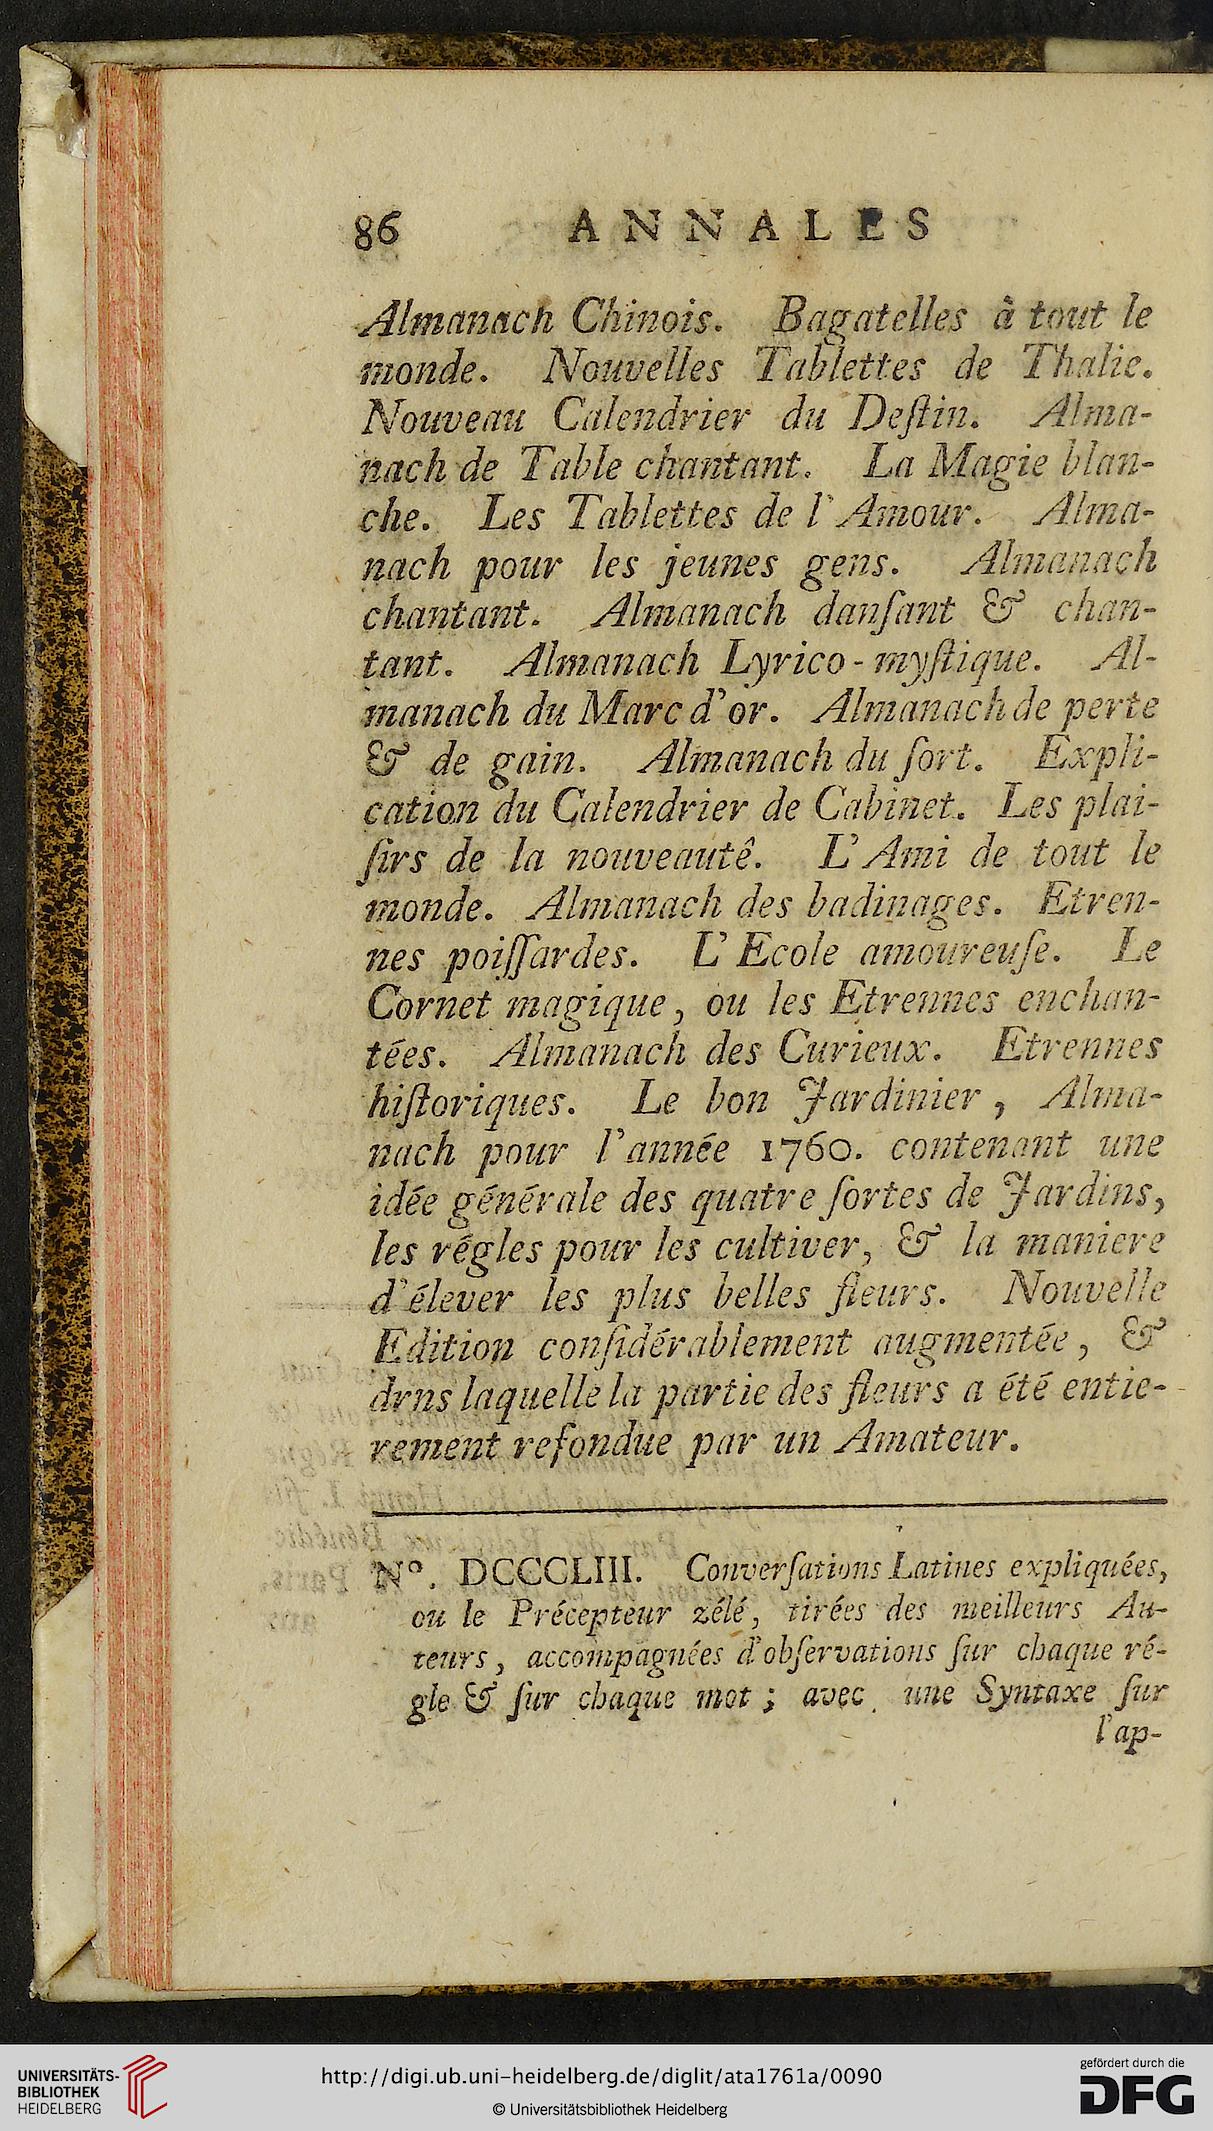 86 ANNALES
Almanach Chinois. Bagatelles à tout le
monde. Nouvelles Tablettes de Thalie.
Nouveau Calendrier du Deſtin. Alma-
nach de Table chantant. La Magie blan-
che. Les Tablettes de l'Amour. Alma-
nach pour les jeunes gens. Almanach
chantant. Almanach danſant & chan-
tant. Almanach Lyrico-myſtique. Al-
manach du Marc d'or. Almanach de perte
& de gain. Almanach du ſort. Expli-
cation du Calendrier de Cabinet. Les plai-
ſirs de la nouveautê. L'Ami de tout le
monde. Almanach des badinages. Etren-
nes poiſſardes. L'Ecole amoureuſe. Le
Cornet magique, ou les Etrennes enchan-
tées. Almanach des Curieux. Etrennes
hiſtoriques. Le bon Jardinier, Alma-
nach pour l'année 1760. contenant une
idée générale des quatre ſortes de Jardins,
les régles pour les cultiver, & la maniere
d'élever les plus belles fleurs. Nouvelle
Edition conſidérablement augmentée, &
drns laquelle la partie des fleurs a été entie-
rement refondue par un Amateur.
Nº. DCCCLIII. Converſations Latines expliquées,
ou le Précepteur zélé, tirées des meilleurs Au-
teurs, accompagnées d'obſervations ſur chaque ré-
gle & ſur chaque mot; avec une Syntaxe ſur
l'ap-
UNIVERSITÄTS-
BIBLIOTHEK
HEIDELBERG
http://digi.ub.uni-heidelberg.de/diglit/ata1761a/0090
© Universitätsbibliothek Heidelberg
gefördert durch die
DFG